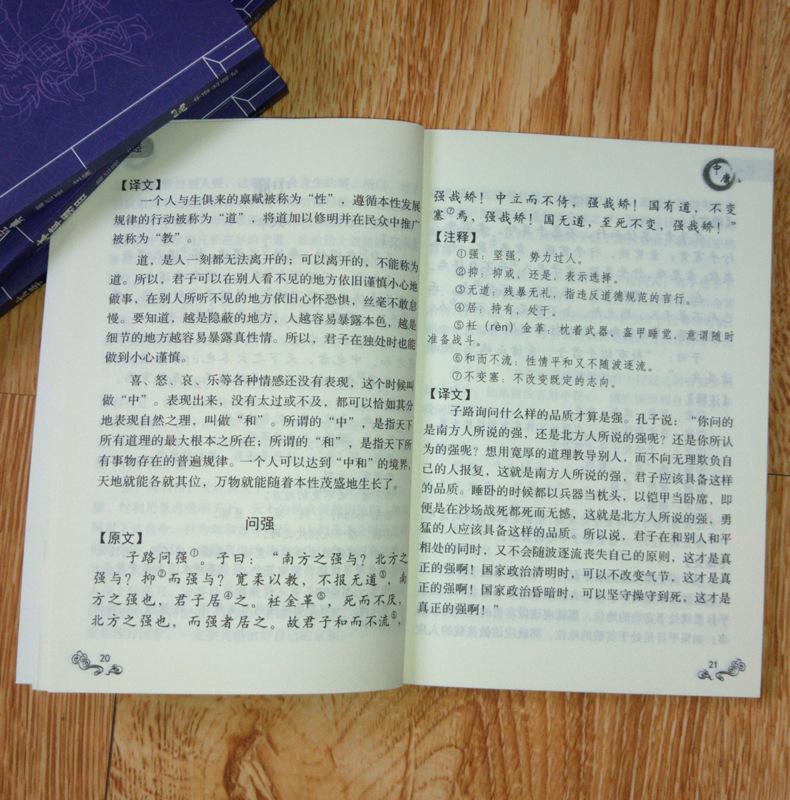 【译文】
一个人与生俱来的禀赋被称为“性”，遵循本性发展
规律的行动被称为“道”，将道加以修明并在民众中推广
被称为“教”。
道，是人一刻都无法离开的；可以离开的，不能称为
道。所以，君子可以在别人看不见的地方依旧谨慎小心地
做事，在别人所听不见的地方依旧心怀恐惧，丝毫不敢怠
慢。要知道，越是隐蔽的地方，人越容易暴露本色，越是
细节的地方越容易暴露真性情。所以，君子在独处时也能
做到小心谨慎。
喜、怒、哀、乐等各种情感还没有表现，这个时候叫
做“中”。表现出来，没有太过或不及，都可以恰如其分
地表现自然之理，叫做“和”。所谓的“中”，是指天下
所有道理的最大根本之所在；所谓的“和”，是指天下所
有事物存在的普遍规律。一个人可以达到“中和”的境界，
天地就能各就其位，万物就能随着本性茂盛地生长了。
问强
【原文】
子路问强①。子曰：“南方之强与？北方之
强与？抑②而强与？宽柔以教，不报无道③，南
方之强也，君子居④之。衽金革⑤，死而不厌，
北方之强也，而强者居之。故君子和而不流⑥，
20
中庸
强哉矫！中立而不倚，强哉矫！国有道，不变
塞⑦焉，强哉矫！国无道，至死不变，强哉矫！”
【注释】
①强：坚强，势力过人。
②抑：抑或，还是，表示选择。
③无道：残暴无礼，指违反道德规范的言行。
④居：持有，处于。
⑤衽（rèn）金革：枕着武器、盔甲睡觉，意谓随时
准备战斗。
⑥和而不流：性情平和又不随波逐流。
⑦不变塞：不改变既定的志向。
【译文】
子路询问什么样的品质才算是强。孔子说：“你问的
是南方人所说的强，还是北方人所说的强呢？还是你所认
为的强呢？想用宽厚的道理教导别人，而不向无理欺负自
己的人报复，这就是南方人所说的强，君子应该具备这样
的品质。睡卧的时候都以兵器当枕头，以铠甲当卧席，即
便是在沙场战死都死而无憾，这就是北方人所说的强，勇
猛的人应该具备这样的品质。所以说，君子在和别人和平
相处的同时，又不会随波逐流丧失自己的原则，这才是真
正的强啊！国家政治清明时，可以不改变气节，这才是真
正的强啊！国家政治昏暗时，可以坚守操守到死，这才是
真正的强啊！”
21